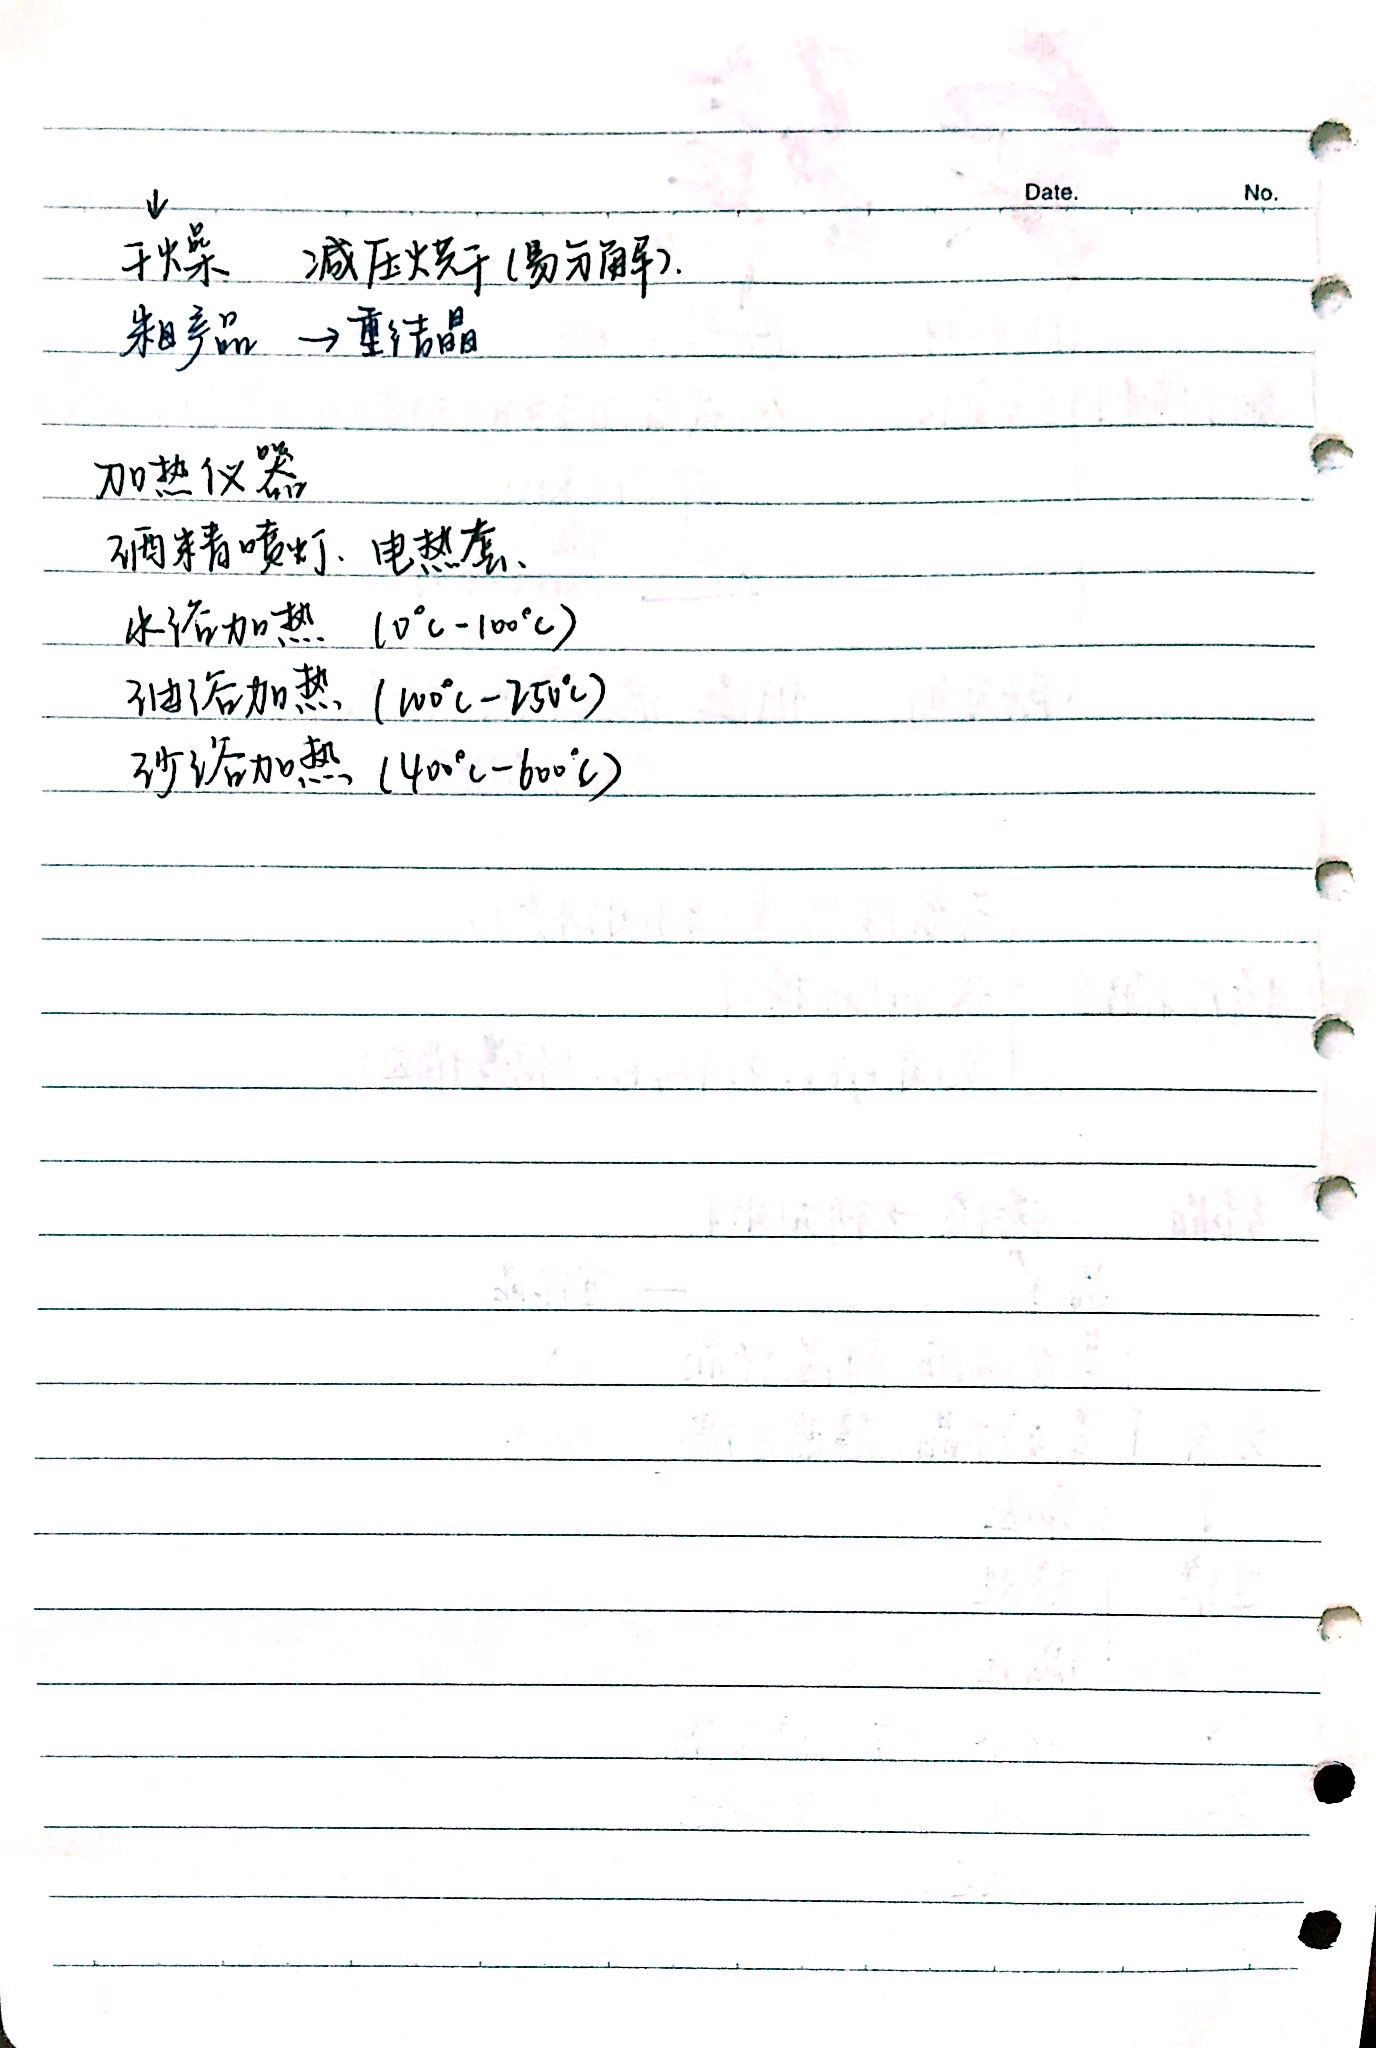 Date. No.
↓
干燥 减压烘干(易分解).
粗产品 →重结晶
加热仪器
酒精喷灯、电热套、
水浴加热 (0°C-100°C)
油浴加热 (100°C-250°C)
砂浴加热 (400°C-600°C)